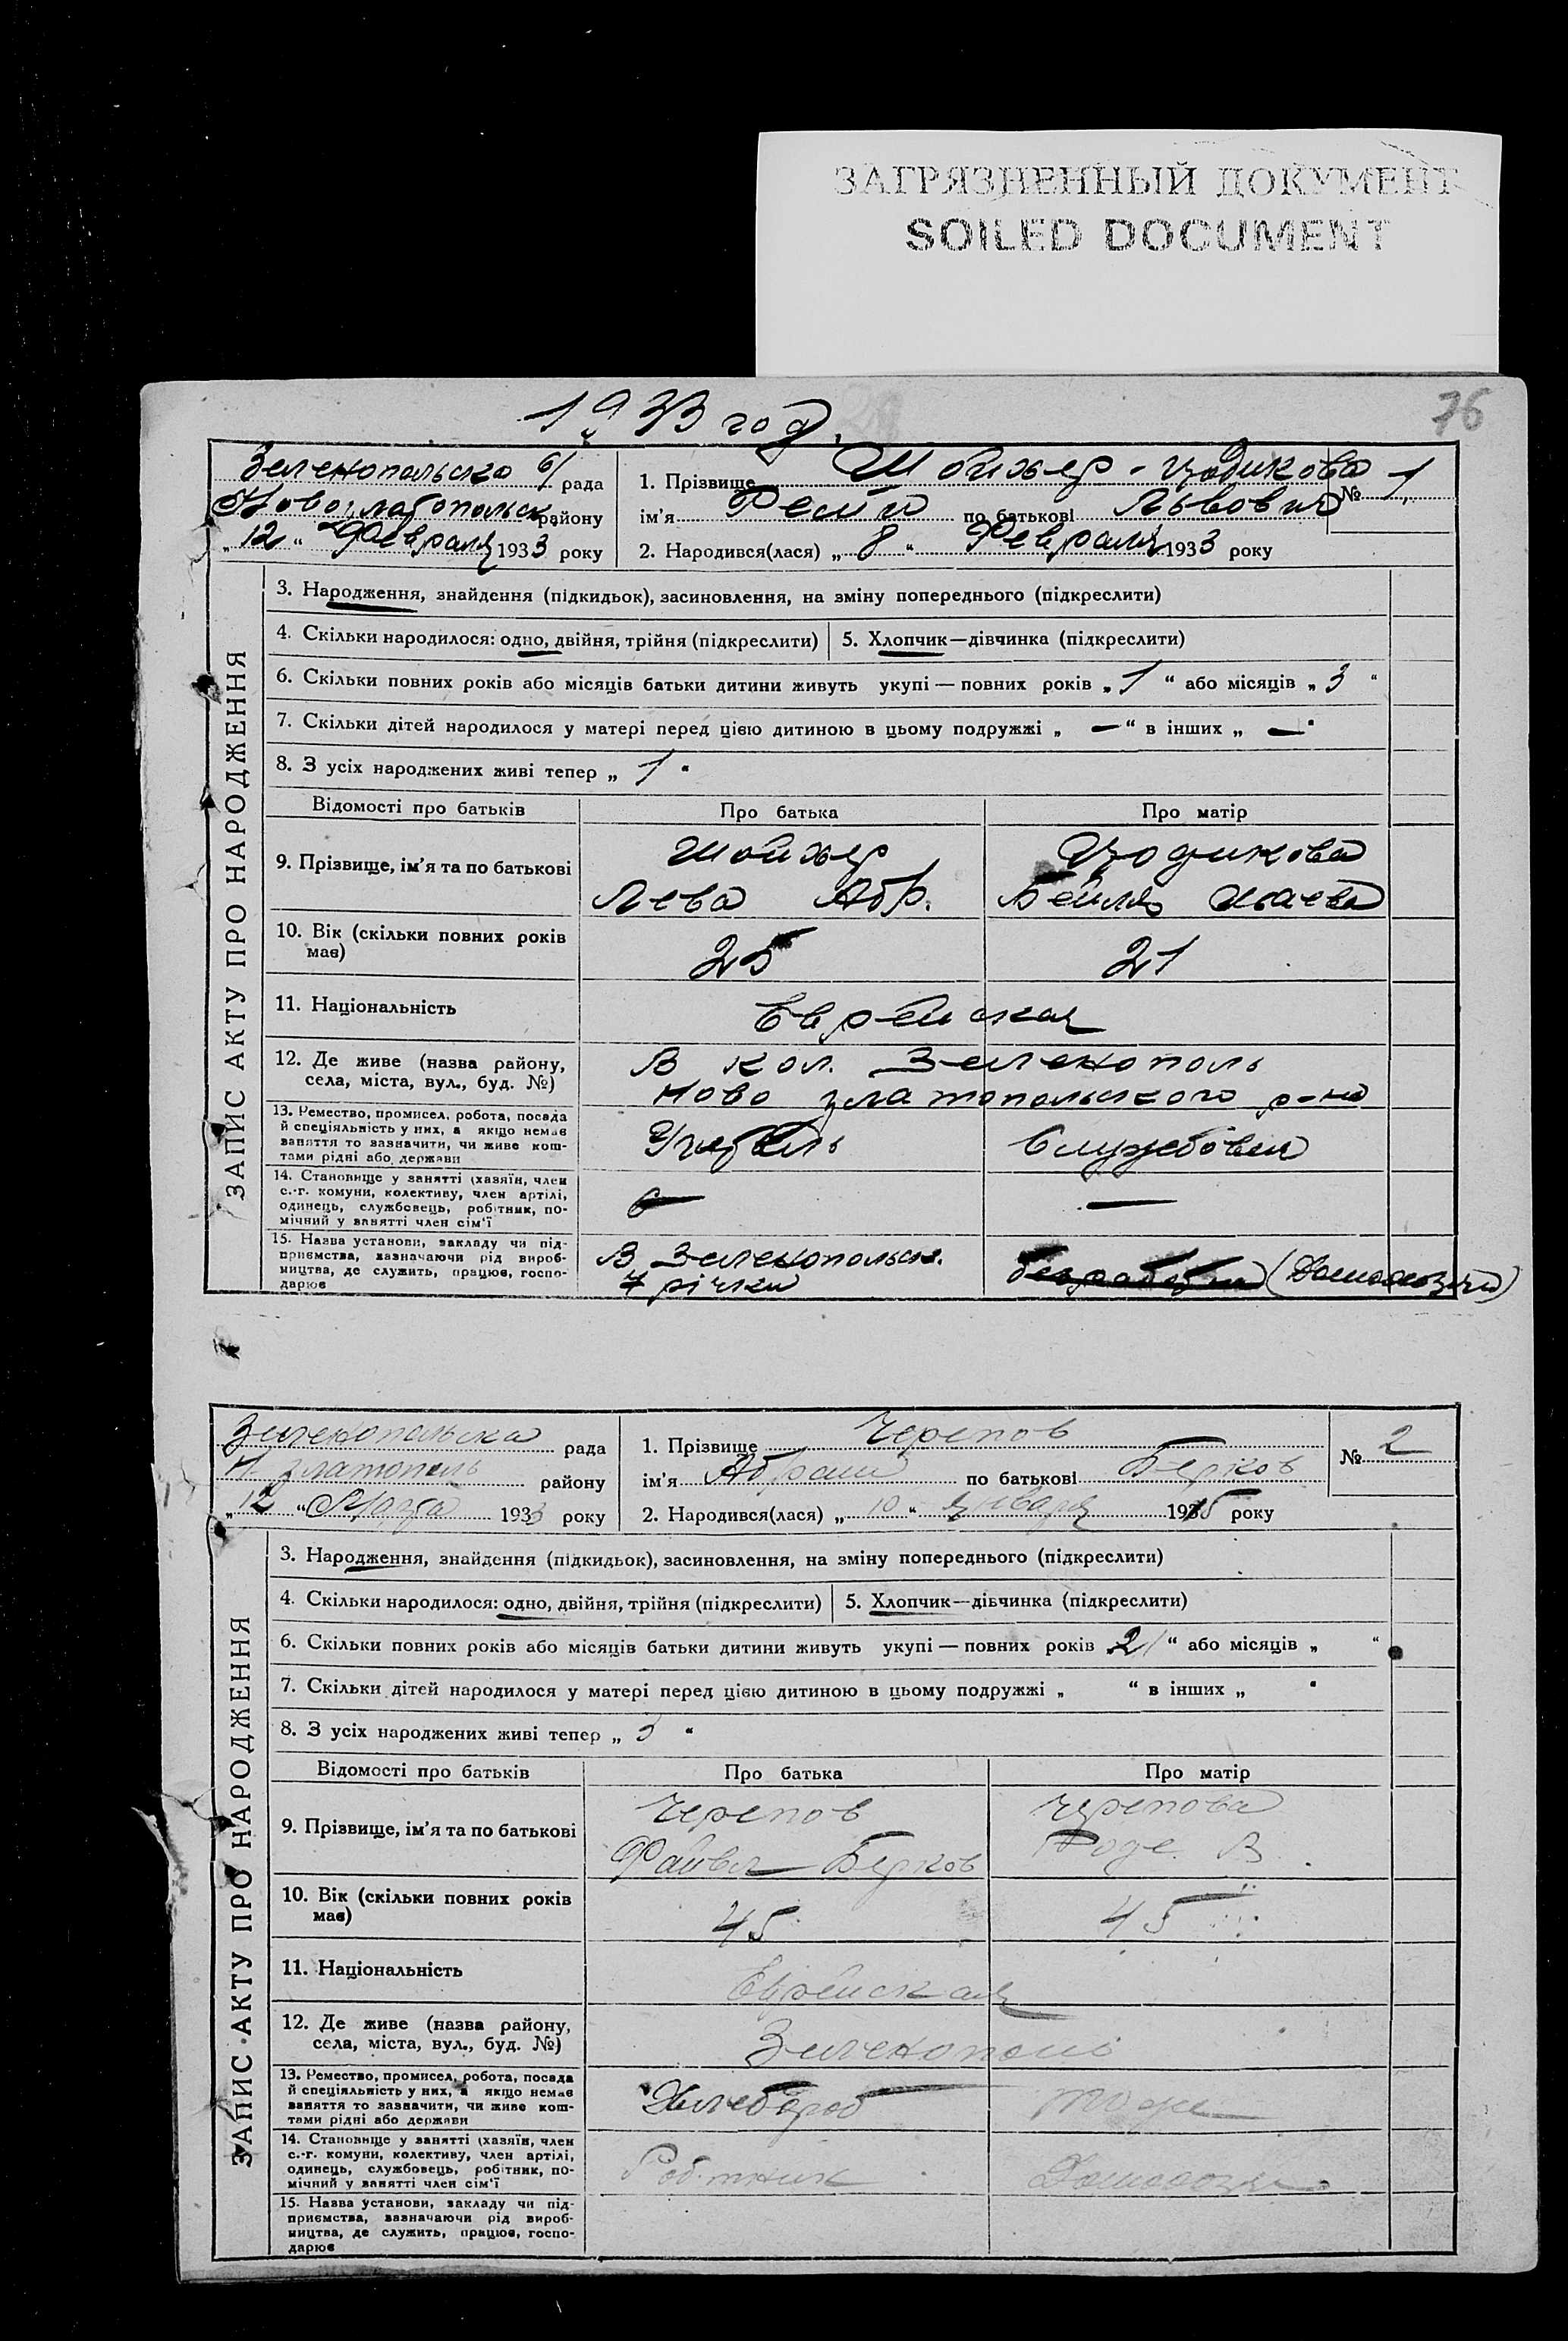 ЗАГРЯЗНЕННЫЙ ДОКУМЕНТ
SOILED DOCUMENT
76
1933 год.
Зеленопольска с/ рада
Новозлатопольск. району
„ 12 “ Февраля 1933 року
1. Прізвище Шойхер-Цодикова
ім’я по батькові Львович
№ 1
2. Народився(лася) „ 8 “ Февраля 1933 року
ЗАПИС АКТУ ПРО НАРОДЖЕННЯ
3. Народження, знайдення (підкидьок), засиновлення, на зміну попереднього (підкреслити)
4. Скільки народилося: одно, двійня, трійня (підкреслити)
5. Хлопчик—дівчинка (підкреслити)
6. Скільки повних років або місяців батьки дитини живуть укупі — повних років „ 1 “ або місяців „ 3 “
7. Скільки дітей народилося у матері перед цією дитиною в цьому подружжі „ — “ в інших „ — “
8. З усіх народжених живі тепер „ 1 “
Відомості про батьків
Про батька
Про матір
9. Прізвище, ім’я та по батькові
Шойхер
Лева Абр.
Цодикова
Бейля
10. Вік (скільки повних років
має)
25
21
11. Національність
Еврейская
12. Де живе (назва району,
села, міста, вул., буд. №)
В кол. Зеленополь
Ново златопольского р-на
13. Ремество, промисел, робота, посада
й спеціяльність у них, а якщо немає
заняття то зазначити, чи живе кош-
тами рідні або держави
Учитель
14. Становище у занятті (хазяїн, член
с.-г. комуни, колективу, член артілі,
одинець, службовець, робітник, по-
мічний у занятті член сім’ї
—
15. Назва установи, закладу чи під-
приємства, зазначаючи рід вироб-
ництва, де служить, працює, госпо-
дарює
В Зеленопольск.
7 річки
Зеленопольска рада
Н. Златополь району
„ 12 “ Марта 1933 року
1. Прізвище Черепов
ім’я Абрам по батькові Берков
№ 2
2. Народився(лася) „ 10 “ января 1915 року
ЗАПИС АКТУ ПРО НАРОДЖЕННЯ
3. Народження, знайдення (підкидьок), засиновлення, на зміну попереднього (підкреслити)
4. Скільки народилося: одно, двійня, трійня (підкреслити)
5. Хлопчик—дівчинка (підкреслити)
6. Скільки повних років або місяців батьки дитини живуть укупі — повних років 21 “ або місяців „ “
7. Скільки дітей народилося у матері перед цією дитиною в цьому подружжі „ “ в інших „ “
8. З усіх народжених живі тепер „ 3 “
Відомості про батьків
Про батька
Про матір
9. Прізвище, ім’я та по батькові
Черепов
Файвл Берков
Черепова
В.
10. Вік (скільки повних років
має)
45
45
11. Національність
Еврейская
12. Де живе (назва району,
села, міста, вул., буд. №)
Зеленополь
13. Ремество, промисел, робота, посада
й спеціяльність у них, а якщо немає
заняття то зазначити, чи живе кош-
тами рідні або держави
Хлебороб
тоже
14. Становище у занятті (хазяїн, член
с.-г. комуни, колективу, член артілі,
одинець, службовець, робітник, по-
мічний у занятті член сім’ї
Робітник
15. Назва установи, закладу чи під-
приємства, зазначаючи рід вироб-
ництва, де служить, працює, госпо-
дарює